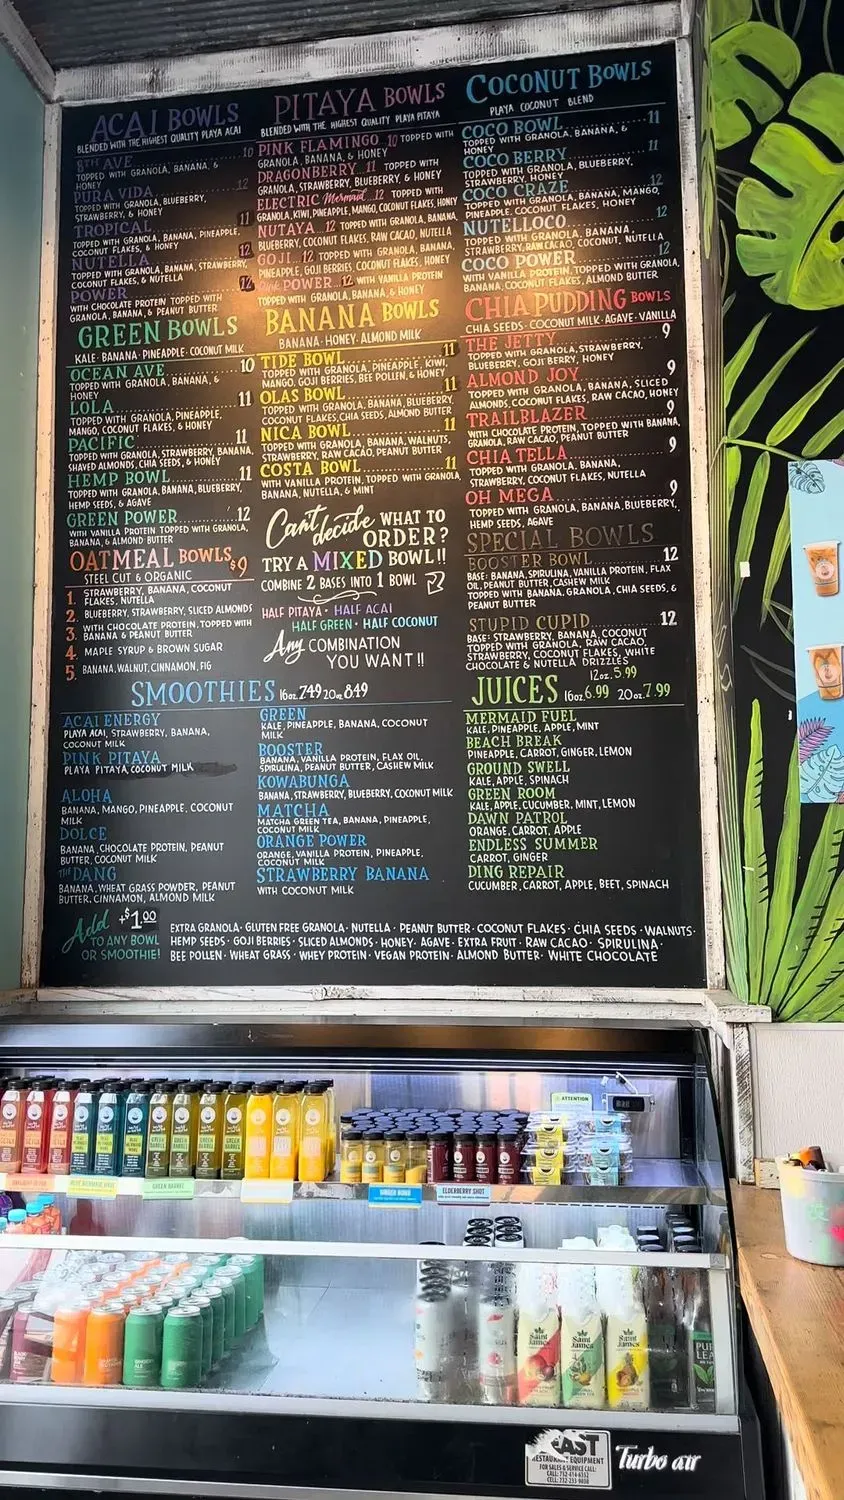 ACAI BOWLS
BLENDED WITH THE HIGHEST QUALITY PLAYA ACAI
8TH AVE 10
TOPPED WITH GRANOLA, BANANA, &
HONEY
PURA VIDA 12
TOPPED WITH GRANOLA, BLUEBERRY,
STRAWBERRY, & HONEY
TROPICAL 11
TOPPED WITH GRANOLA, BANANA, PINEAPPLE,
COCONUT FLAKES, & HONEY
NUTELLA 12
TOPPED WITH GRANOLA, BANANA, STRAWBERRY,
COCONUT FLAKES, & NUTELLA
POWER 12
WITH CHOCOLATE PROTEIN TOPPED WITH
GRANOLA, BANANA, & PEANUT BUTTER
GREEN BOWLS
KALE · BANANA · PINEAPPLE · COCONUT MILK
OCEAN AVE 10
TOPPED WITH GRANOLA, BANANA, &
HONEY
LOLA 11
TOPPED WITH GRANOLA, PINEAPPLE,
MANGO, COCONUT FLAKES, & HONEY
PACIFIC 11
TOPPED WITH GRANOLA, STRAWBERRY, BANANA,
SHAVED ALMONDS, CHIA SEEDS, & HONEY
HEMP BOWL 11
TOPPED WITH GRANOLA, BANANA, BLUEBERRY,
HEMP SEEDS, & AGAVE
GREEN POWER 12
WITH VANILLA PROTEIN TOPPED WITH GRANOLA,
BANANA, & ALMOND BUTTER
OATMEAL BOWLS $9
STEEL CUT & ORGANIC
1. STRAWBERRY, BANANA, COCONUT
FLAKES, NUTELLA
2. BLUEBERRY, STRAWBERRY, SLICED ALMONDS
3. WITH CHOCOLATE PROTEIN, TOPPED WITH
BANANA & PEANUT BUTTER
4. MAPLE SYRUP & BROWN SUGAR
5. BANANA, WALNUT, CINNAMON, FIG
PITAYA BOWLS
BLENDED WITH THE HIGHEST QUALITY PLAYA PITAYA
PINK FLAMINGO 10 TOPPED WITH
GRANOLA, BANANA, & HONEY
DRAGONBERRY 11 TOPPED WITH
GRANOLA, STRAWBERRY, BLUEBERRY, & HONEY
ELECTRIC Mermaid 12 TOPPED WITH
GRANOLA, KIWI, PINEAPPLE, MANGO, COCONUT FLAKES, HONEY
NUTAYA 12 TOPPED WITH GRANOLA, BANANA,
BLUEBERRY, COCONUT FLAKES, RAW CACAO, NUTELLA
GOJI 12 TOPPED WITH GRANOLA, BANANA,
PINEAPPLE, GOJI BERRIES, COCONUT FLAKES, HONEY
Pink POWER 12 WITH VANILLA PROTEIN
TOPPED WITH GRANOLA, BANANA, & HONEY
BANANA BOWLS
BANANA · HONEY · ALMOND MILK
TIDE BOWL 11
TOPPED WITH GRANOLA, PINEAPPLE, KIWI,
MANGO, GOJI BERRIES, BEE POLLEN, & HONEY
OLAS BOWL 11
TOPPED WITH GRANOLA, BANANA, BLUEBERRY,
COCONUT FLAKES, CHIA SEEDS, ALMOND BUTTER
NICA BOWL 11
TOPPED WITH GRANOLA, BANANA, WALNUTS,
STRAWBERRY, RAW CACAO, PEANUT BUTTER
COSTA BOWL 11
WITH VANILLA PROTEIN, TOPPED WITH GRANOLA,
BANANA, NUTELLA, & MINT
Can't decide WHAT TO
ORDER?
TRY A MIXED BOWL!!
COMBINE 2 BASES INTO 1 BOWL
HALF PITAYA · HALF ACAI
HALF GREEN · HALF COCONUT
Any COMBINATION
YOU WANT!!
COCONUT BOWLS
PLAYA COCONUT BLEND
COCO BOWL 11
TOPPED WITH GRANOLA, BANANA, &
HONEY
COCO BERRY 11
TOPPED WITH GRANOLA, BLUEBERRY,
STRAWBERRY, HONEY
COCO CRAZE 12
TOPPED WITH GRANOLA, BANANA, MANGO,
PINEAPPLE, COCONUT FLAKES, HONEY
NUTELLOCO 12
TOPPED WITH GRANOLA, BANANA,
STRAWBERRY, RAW CACAO, COCONUT, NUTELLA
COCO POWER 12
WITH VANILLA PROTEIN, TOPPED WITH GRANOLA,
BANANA, COCONUT FLAKES, ALMOND BUTTER
CHIA PUDDING BOWLS
CHIA SEEDS · COCONUT MILK · AGAVE · VANILLA
THE JETTY 9
TOPPED WITH GRANOLA, STRAWBERRY,
BLUEBERRY, GOJI BERRY, HONEY
ALMOND JOY 9
TOPPED WITH GRANOLA, BANANA, SLICED
ALMONDS, COCONUT FLAKES, RAW CACAO, HONEY
TRAILBLAZER 9
WITH CHOCOLATE PROTEIN, TOPPED WITH BANANA,
GRANOLA, RAW CACAO, PEANUT BUTTER
CHIA TELLA 9
TOPPED WITH GRANOLA, BANANA,
STRAWBERRY, COCONUT FLAKES, NUTELLA
OH MEGA 9
TOPPED WITH GRANOLA, BANANA, BLUEBERRY,
HEMP SEEDS, AGAVE
SPECIAL BOWLS
BOOSTER BOWL 12
BASE: BANANA, SPIRULINA, VANILLA PROTEIN, FLAX
OIL, PEANUT BUTTER, CASHEW MILK
TOPPED WITH BANANA, GRANOLA, CHIA SEEDS, &
PEANUT BUTTER
STUPID CUPID 12
BASE: STRAWBERRY, BANANA, COCONUT
TOPPED WITH GRANOLA, RAW CACAO,
STRAWBERRY, COCONUT FLAKES, WHITE
CHOCOLATE & NUTELLA DRIZZLES
SMOOTHIES 16oz. 7.49 20oz. 8.49
ACAI ENERGY
PLAYA ACAI, STRAWBERRY, BANANA,
COCONUT MILK
PINK PITAYA
PLAYA PITAYA, COCONUT MILK
ALOHA
BANANA, MANGO, PINEAPPLE, COCONUT
MILK
DOLCE
BANANA, CHOCOLATE PROTEIN, PEANUT
BUTTER, COCONUT MILK
THE DANG
BANANA, WHEAT GRASS POWDER, PEANUT
BUTTER, CINNAMON, ALMOND MILK
GREEN
KALE, PINEAPPLE, BANANA, COCONUT
MILK
BOOSTER
BANANA, VANILLA PROTEIN, FLAX OIL,
SPIRULINA, PEANUT BUTTER, CASHEW MILK
KOWABUNGA
BANANA, STRAWBERRY, BLUEBERRY, COCONUT MILK
MATCHA
MATCHA GREEN TEA, BANANA, PINEAPPLE,
COCONUT MILK
ORANGE POWER
ORANGE, VANILLA PROTEIN, PINEAPPLE,
COCONUT MILK
STRAWBERRY BANANA
WITH COCONUT MILK
12oz. 5.99
JUICES 16oz. 6.99 20oz. 7.99
MERMAID FUEL
KALE, PINEAPPLE, APPLE, MINT
BEACH BREAK
PINEAPPLE, CARROT, GINGER, LEMON
GROUND SWELL
KALE, APPLE, SPINACH
GREEN ROOM
KALE, APPLE, CUCUMBER, MINT, LEMON
DAWN PATROL
ORANGE, CARROT, APPLE
ENDLESS SUMMER
CARROT, GINGER
DING REPAIR
CUCUMBER, CARROT, APPLE, BEET, SPINACH
Add +$1.00
TO ANY BOWL
OR SMOOTHIE!
EXTRA GRANOLA · GLUTEN FREE GRANOLA · NUTELLA · PEANUT BUTTER · COCONUT FLAKES · CHIA SEEDS · WALNUTS ·
HEMP SEEDS · GOJI BERRIES · SLICED ALMONDS · HONEY · AGAVE · EXTRA FRUIT · RAW CACAO · SPIRULINA ·
BEE POLLEN · WHEAT GRASS · WHEY PROTEIN · VEGAN PROTEIN · ALMOND BUTTER · WHITE CHOCOLATE
ATTENTION
GREEN BARREL
ELDERBERRY SHOT
Saint James
Saint James
Saint James
PURE LEAF
EAST
RESTAURANT EQUIPMENT
FOR SALES & SERVICE CALL:
Turbo air